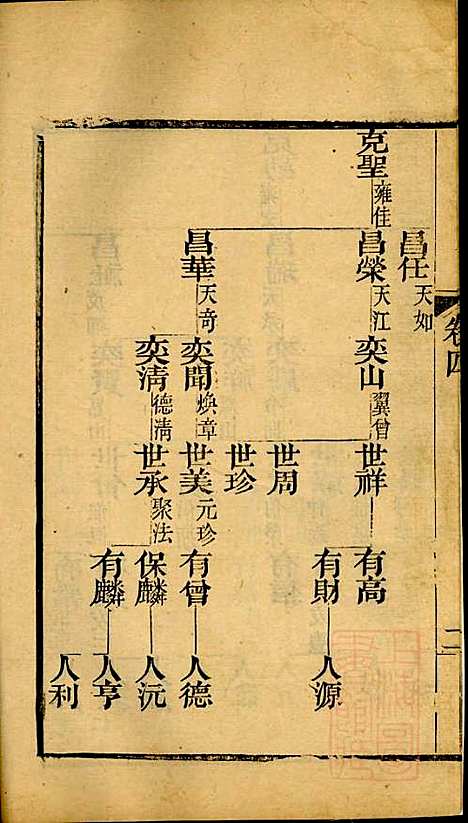 卷四
二
昌任天如
克聖雍佳
昌榮天江
奕山翼曾
世祥
有高
世周
有財
人源
世珍
昌華天奇
奕聞煥章
世美元珍
有曾
人德
奕淸德淸
世承聚法
保麟
人沅
有麟
人亨
人利